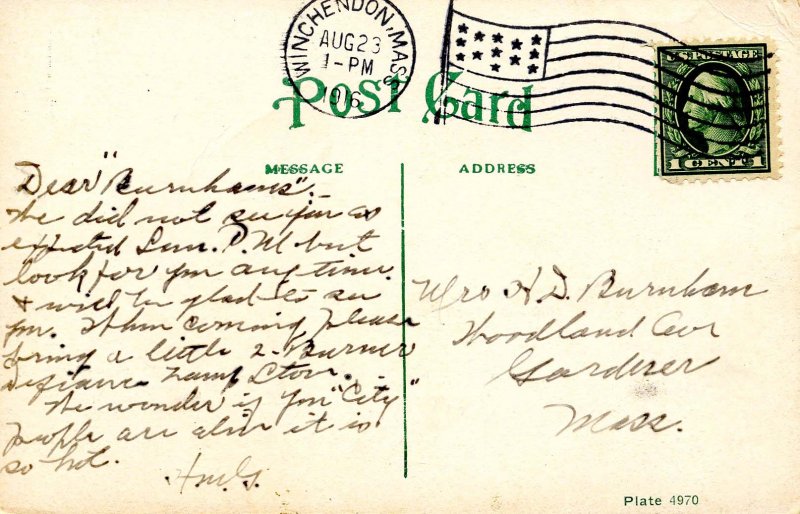 WINCHENDON, MASS.
AUG 23
1-PM
1916
U.S. POSTAGE
1 CENT 1
Post Card
MESSAGE
ADDRESS
Dear "Burnhams".
We did not see you as
expected Sun. P.M but
look for you any time.
& will be glad to see
you. When coming please
bring a little 2-Burner
Defiance Lamp Stove.
We wonder if you "City"
people are alive it is
so hot.
H.M.G.
Mrs H. D. Burnham
Woodland Ave
Gardner
Mass.
Plate 4970